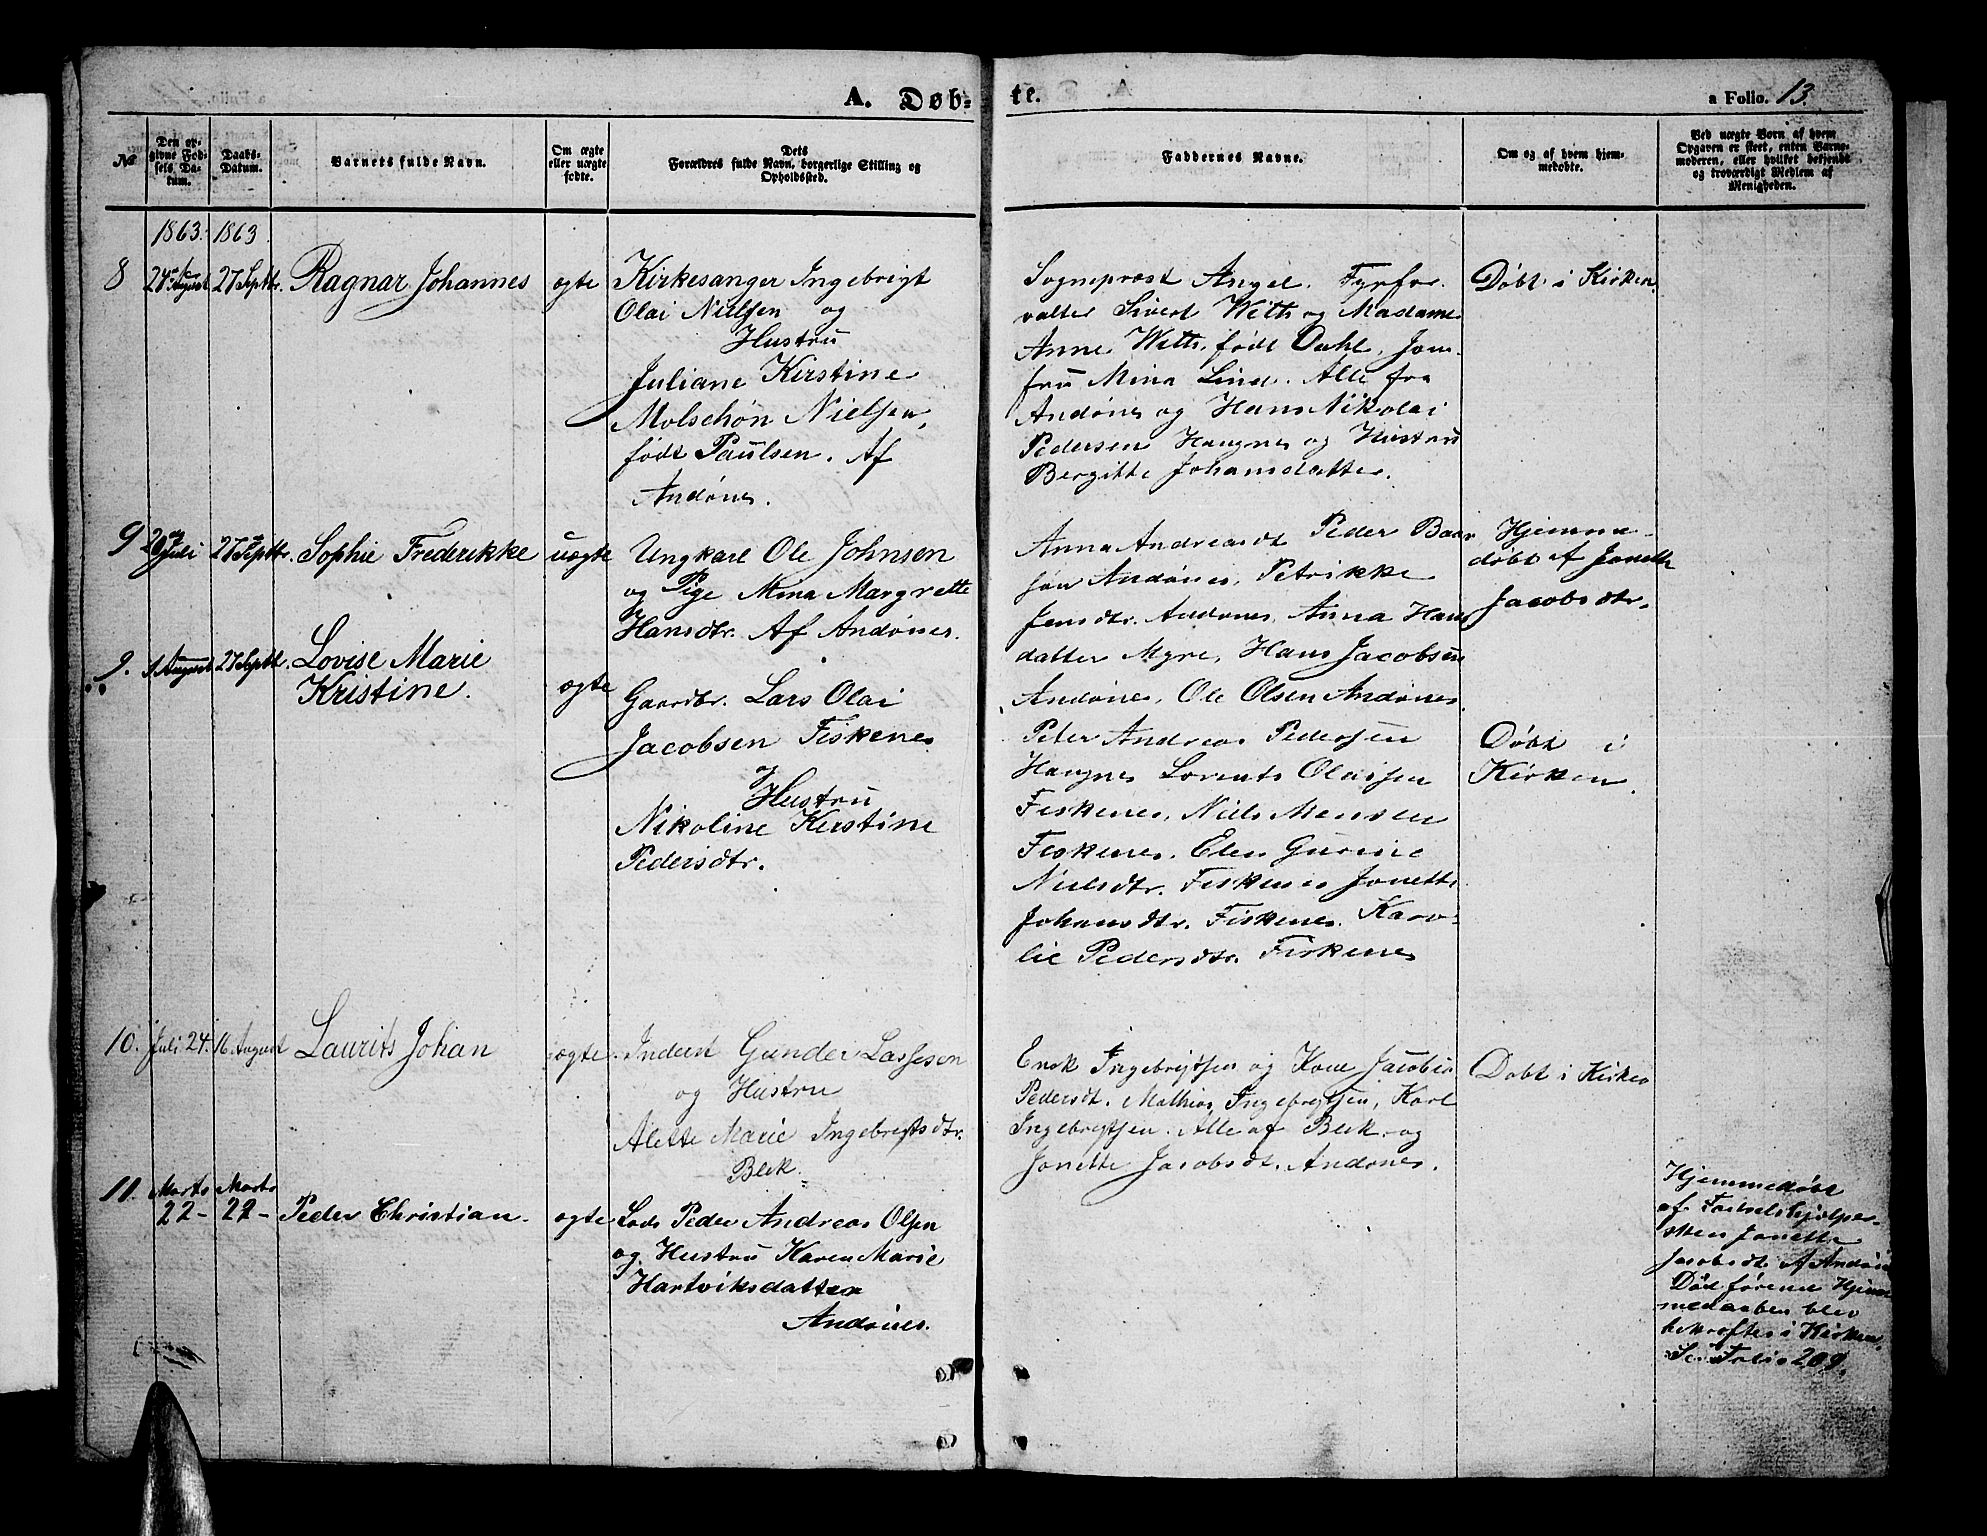 A. Døb-
te.
a Folio. 13
№
Den op-
givne Fød-
sels Da-
tum.
Daabs-
Datum.
Barnets fulde Navn.
Om ægte
eller uægte
fødte.
Dets
Forældres fulde Navn, borgerlige Stilling og
Opholdssted.
Faddernes Navne.
Om og af hvem hjem-
medøbte.
Ved uægte Børn af hvem
Opgaven er skeet, enten Barne-
moderen, eller hvilket bekjendt
og troværdigt Medlem af
Menigheden.
1863. 1863
8
August 27 Septbr.
Ragnar Johannes
ægte
Kirkesanger Ingebrigt
Olai Nielsen og
Hustru
Juliane Kirstine
Molschøn Nielsen,
født Paulsen. Af
Andønes.
Sognepræst Angel. Fyrfor-
valter Sivert With og Madame
Anne With, født Dahl, Jom-
fru Mina Lind. Alle fra
Andønes og Hans Nikolai
Pedersen Haugnes og Hustru
Bergitte Johansdatter.
Døbt i Kirken
9
Juli 27 Septbr.
Sophie Frederikke
uægte
Ungkarl Ole Johnsen
og Pige Mina Margrette
Hansdtr. Af Andønes.
Anna Andreasdt Peder
Andønes, Petrikke
Jensdtr. Andønes, Anna Hans
datter Myre, Hans Jacobsen
Andønes, Ole Olsen Andønes.
Hjemme-
døbt af Jonette
Jacobsdtr.
9.
1 August 27 Septbr.
Lovise Marie
Kristine.
ægte
Gaardbr. Lars Olai
Jacobsen Fiskenes
og
Hustru
Nikoline Kirstine
Pedersdtr.
Peter Andreas Pedersen
Haugnes Lorents Olaisen
Fiskenes, Niels Monsen
Fiskenes. Elen Gurine
Nielsdtr. Fiskenes Jonette
Johansdtr. Fiskenes. Karo-
lie Pedersdtr. Fiskenes
Døbt i
Kirken.
10.
Juli 24. 16 August
Laurits Johan
ægte.
Inderst Gunder Lassesen
og Hustru
Alette Marie Ingebregtsdtr.
Blek.
Erik Ingebregtsen og Kone Jacobin
Pedersdt. Mathias Ingebregtsen, Karl
Ingebregtsen. Alle af Blek og
Jonette Jacobsdt. Andønes.
Døbt i Kirken
11.
Marts Marts
22- 22-
Peder Christian.
ægte
Lods Peder Andreas Olsen
og Hustru Karen Marie
Hartviksdatter
Andønes.
Hjemmedøbt
af Fødselshjelper-
sken Jonette
Jacobsdt. Af Andønes
Død førend Hjem-
medaaben blev
bekræftet i Kirken.
Se Folio 209.